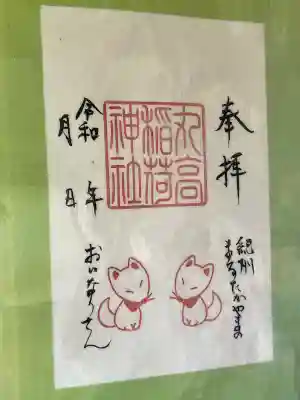 奉拝
紀州
まるたかやまの
丸高
稲荷
神社
令和 年
月 日
おいなりさん